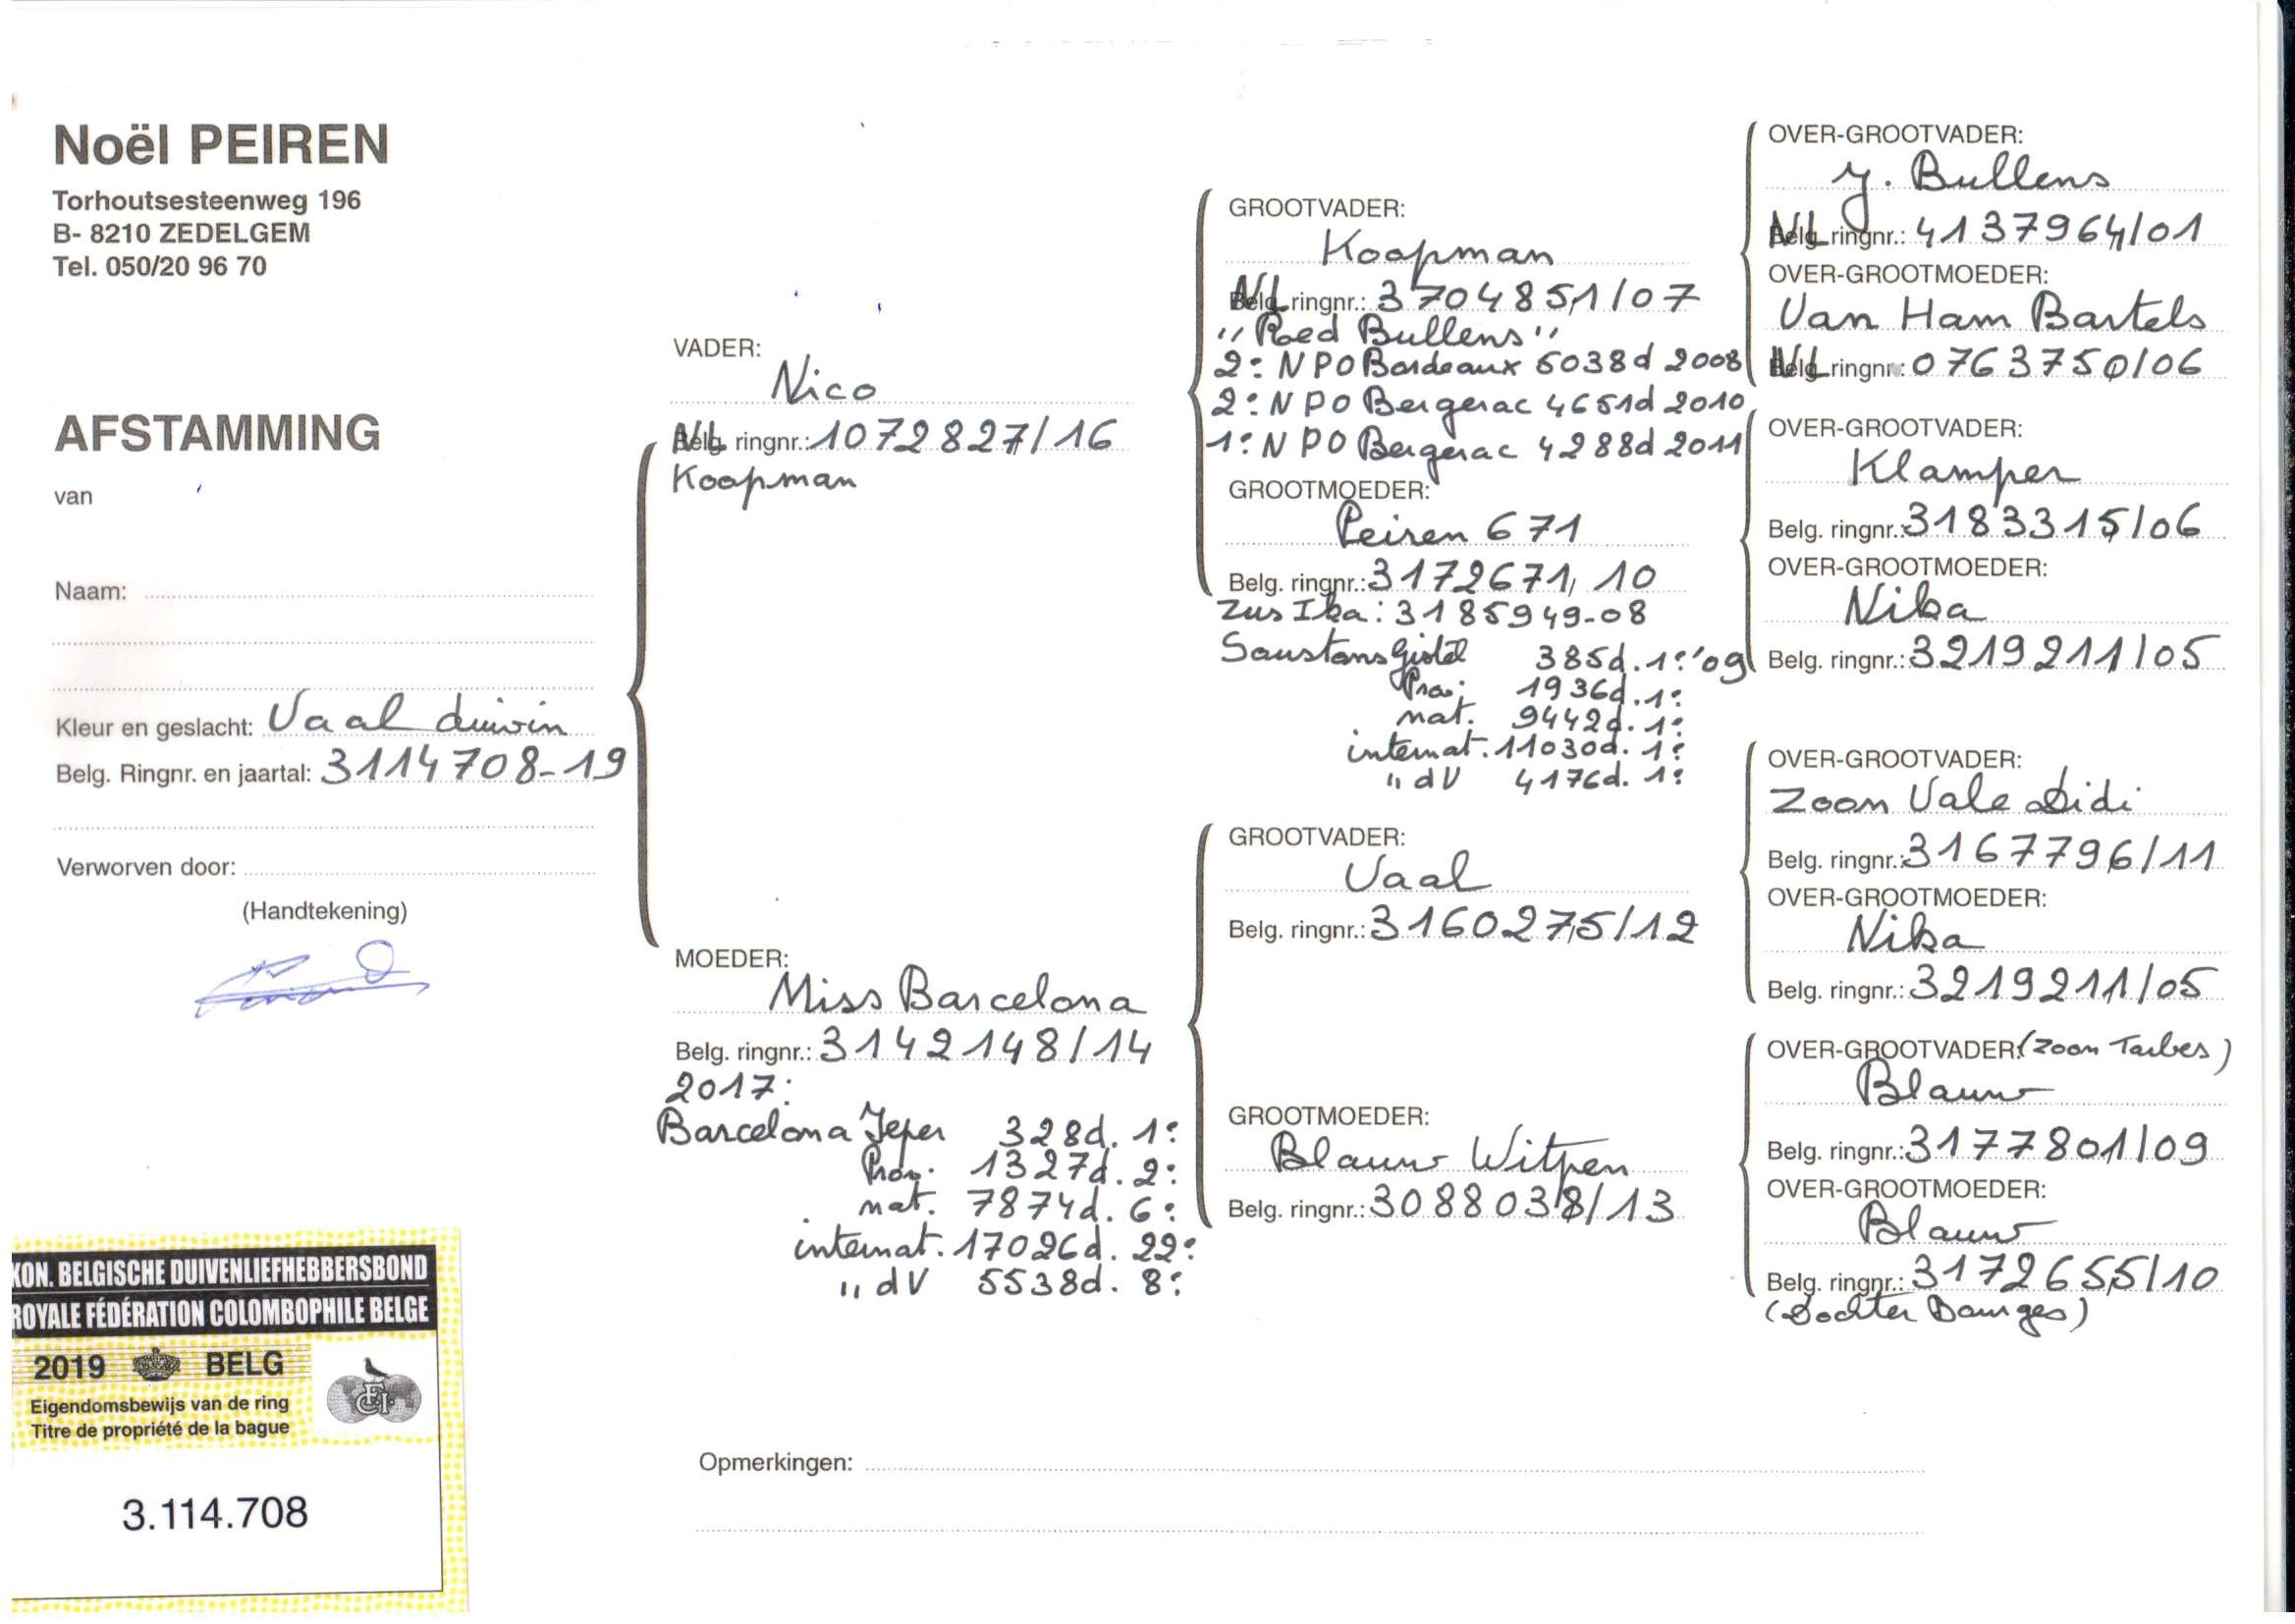 Noël PEIREN
Torhoutsesteenweg 196
B- 8210 ZEDELGEM
Tel. 050/20 96 70
AFSTAMMING
van
Naam:
Kleur en geslacht: Vaal duivin
Belg. Ringnr. en jaartal: 3114708-19
Verworven door:
(Handtekening)
KON. BELGISCHE DUIVENLIEFHEBBERSBOND
ROYALE FÉDÉRATION COLOMBOPHILE BELGE
2019 BELG
FCI
Eigendomsbewijs van de ring
Titre de propriété de la bague
3.114.708
VADER:
Nico
NL ringnr.: 1072827/16
Koopman
MOEDER:
Miss Barcelona
Belg. ringnr.: 3142148/14
2017:
Barcelona Ieper 328d. 1e
Prov. 1327d. 2e
nat. 7874d. 6e
internat. 17026d. 22e
,, dV 5538d. 8e
GROOTVADER:
Koopman
NL ringnr.: 3704851/07
"Roed Bullens"
2e NPO Bordeaux 5038d 2008
2e NPO Bergerac 4651d 2010
1e NPO Bergerac 4288d 2011
GROOTMOEDER:
Peiren 671
Belg. ringnr.: 3172671, 10
Zus Ika: 3185949-08
Soustons Gistel 385d. 1e '09
Prov. 1936d. 1e
nat. 9442d. 1e
internat. 11030d. 1e
,, dV 4176d. 1e
GROOTVADER:
Vaal
Belg. ringnr.: 3160275/12
GROOTMOEDER:
Blauw Witpen
Belg. ringnr.: 3088038/13
OVER-GROOTVADER:
J. Bullens
NL ringnr.: 4137964/01
OVER-GROOTMOEDER:
Van Ham Bartels
NL ringnr.: 0763750/06
OVER-GROOTVADER:
Klamper
Belg. ringnr.: 3183315/06
OVER-GROOTMOEDER:
Nika
Belg. ringnr.: 3219211/05
OVER-GROOTVADER:
Zoon Vale Didi
Belg. ringnr.: 3167796/11
OVER-GROOTMOEDER:
Nika
Belg. ringnr.: 3219211/05
OVER-GROOTVADER: (Zoon Tarbes)
Blauw
Belg. ringnr.: 3177801/09
OVER-GROOTMOEDER:
Blauw
Belg. ringnr.: 3172655/10
(Dochter Bourges)
Opmerkingen: